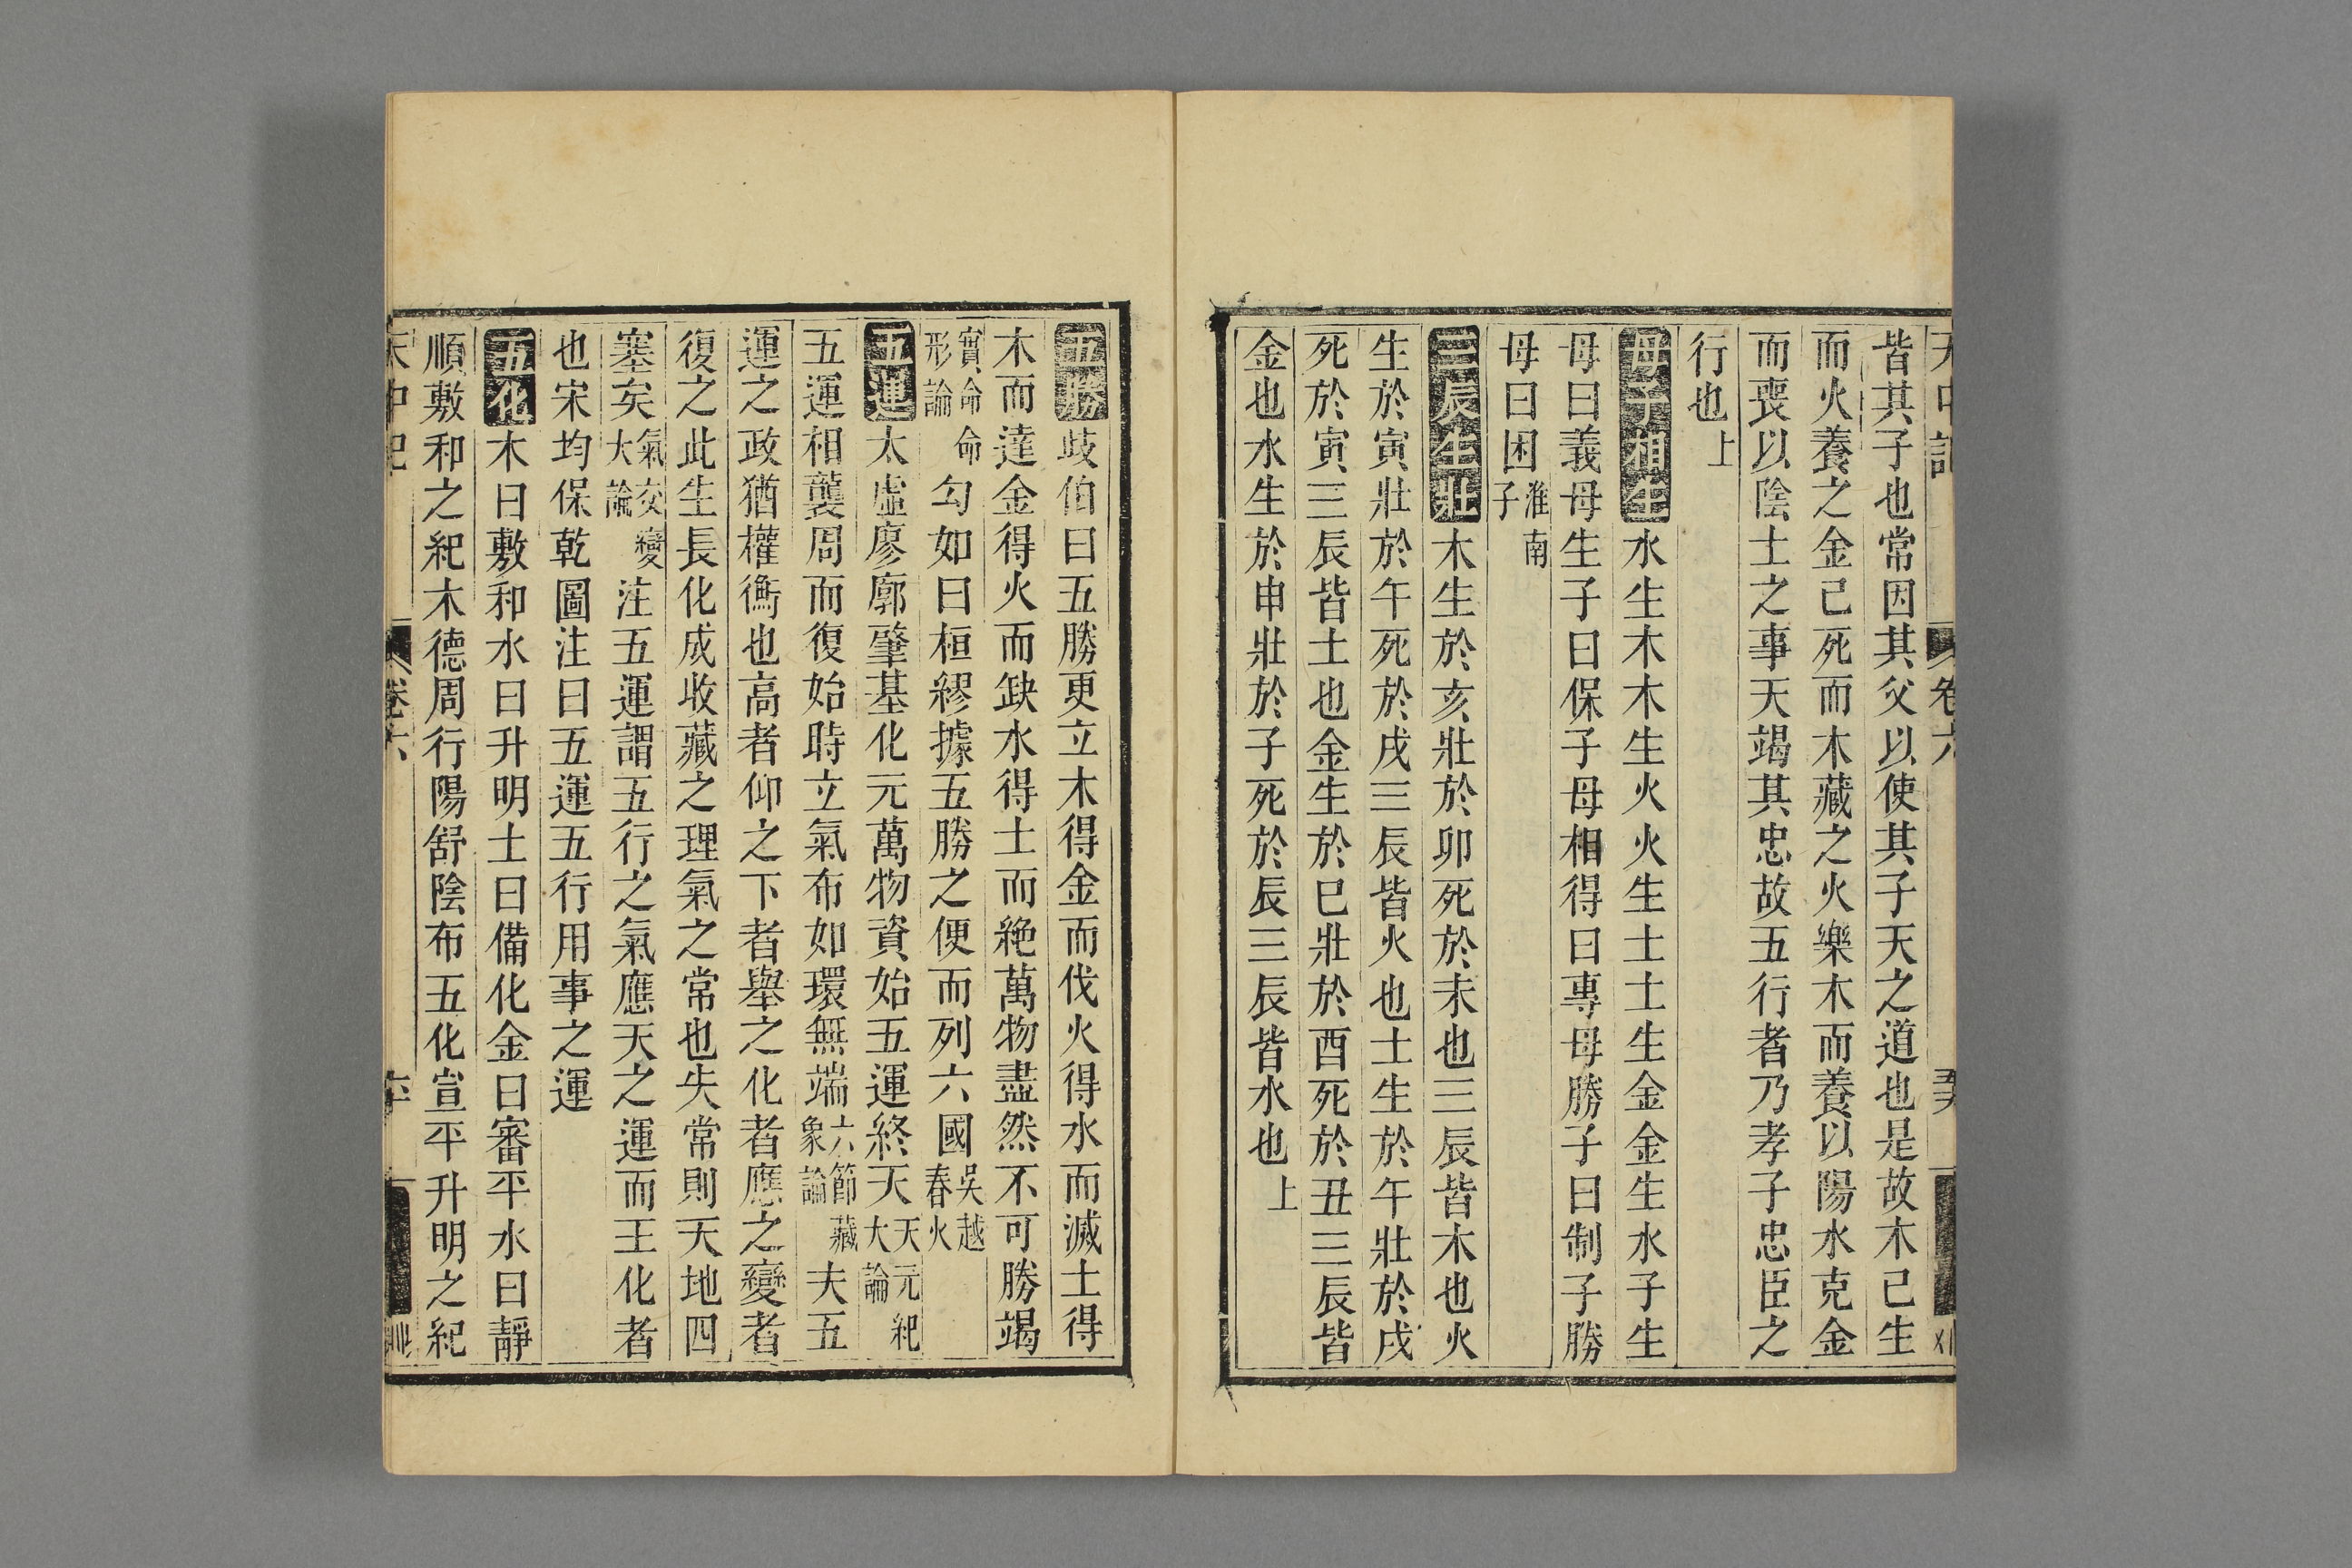 天中記 卷六
皆其子也常因其父以使其子天之道也是故木已生
而火養之金已死而木藏之火樂木而養以陽水克金
而喪以陰土之事天竭其忠故五行者乃孝子忠臣之
行也上
母子相生水生木木生火火生土土生金金生水子生
母曰義母生子曰保子母相得曰專母勝子曰制子勝
母曰困淮南子
三辰生壯木生於亥壯於卯死於未也三辰皆木也火
生於寅壯於午死於戌三辰皆火也土生於午壯於戌
死於寅三辰皆土也金生於巳壯於酉死於丑三辰皆
金也水生於申壯於子死於辰三辰皆水也上
五勝歧伯曰五勝更立木得金而伐火得水而滅土得
木而達金得火而缺水得土而絶萬物盡然不可勝竭
寳命命形論勾如曰桓繆據五勝之便而列六國吳越春火
五運太虛廖廓肇基化元萬物資始五運終天天元紀大論
五運相襲周而復始時立氣布如環無端六節藏象論夫五
運之政猶權衡也高者仰之下者舉之化者應之變者
復之此生長化成收藏之理氣之常也失常則天地四
塞矣氣交變大論注五運謂五行之氣應天之運而王化者
也宋均保乾圖注曰五運五行用事之運
五化木曰敷和水曰升明土曰備化金曰審平水曰靜
順敷和之紀木德周行陽舒陰布五化宣平升明之紀
天中記 卷六